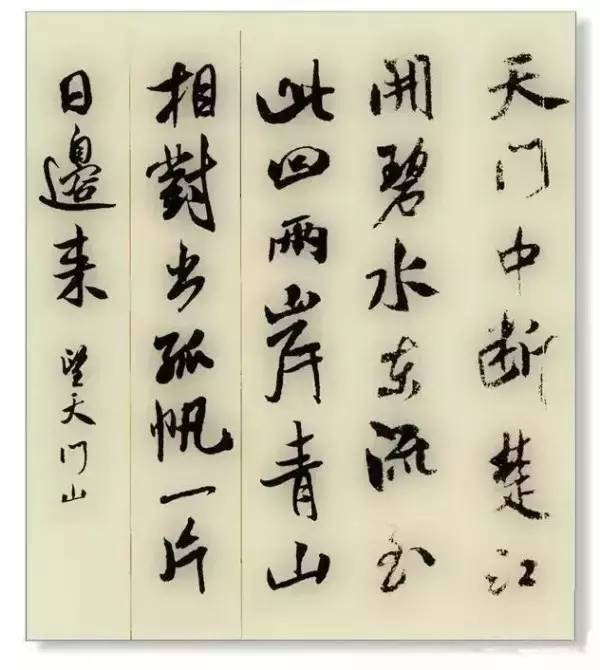 天门中断楚江
開碧水东流至
此回兩岸青山
相對出孤帆一片
日邊来
望天门山